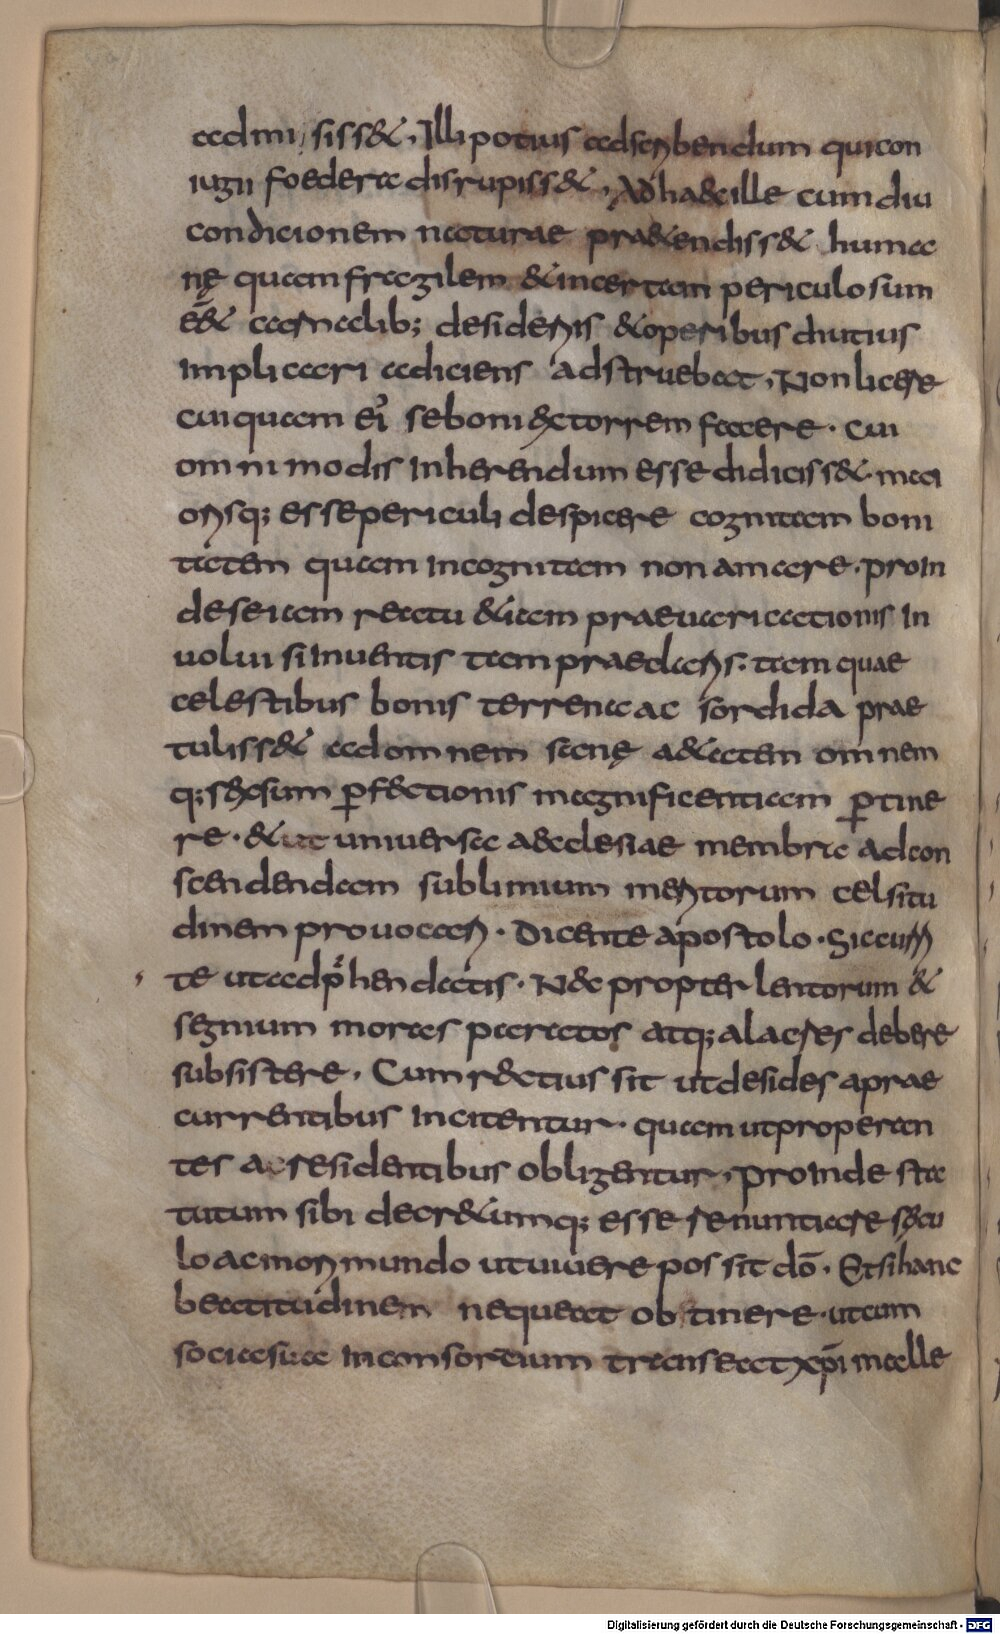 admi sisset, Illi potius adscribendum qui con
iugii foedera disrupisset, Ad haec ille cum diu
condicionem naturae praetendisset huma
nę quam fragilem & incertam periculosum
ē& carnalib; desideriis & operibus diutius
implicari adiciens adstruebat, Non licere
cuiquam ei se boni extorrem facere. cui
omni modis inherendum esse didicisset. mai
orisq; esse periculi despicere cognitam boni
tatem quam incognitam non amare. proin
de se iam reatu & iam praeuaricationis in
uolui si inuentis tam praeclaris. tam quae
celestibus bonis terrena ac sordida prae
tulisset ad omnem sanę aetatem omnem
q; sexsum ꝑfectionis magnificentiam ꝑtine
re. & ut uniuersa aecclesiae membra ad con
scendendam sublimium meritorum celsitu
dinem prouocari. Dicente apostolo. Sic curri
te ut adp̄hendatis. Nec propter lentorum &
segnium moras paratos atq; alacres debere
subsistere. Cum rectius sit ut desides a prae
currentibus incitentur. quam ut properan
tes a residentibus obligentur, Proinde sta
tutum sibi decretumq; esse renuntiare sęcu
lo ac mori mundo ut uiuere possit dō. Et si hanc
beatitudinem nequeat obtinere. ut cum
socia sua in consortium transeat xp̄i malle
Digitalisierung gefördert durch die Deutsche Forschungsgemeinschaft - DFG